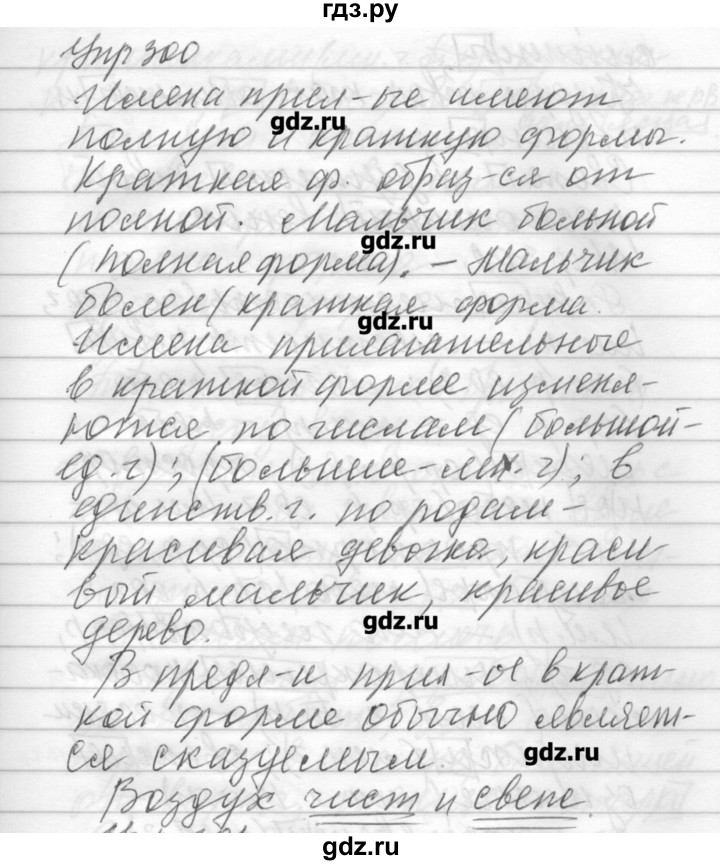 гдз.ру
Упр 300
Имена прил-ые имеют
gdz.ru
полную и краткую формы.
Краткая ф. образ-ся от
полной. Мальчик больной
gdz.ru
(полная форма). - Мальчик
болен (краткая форма.
gdz.ru
Имена прилагательные
в краткой форме изменя-
ются по числам (большой-
ед.ч); (большие-мн.ч); в
единств.ч. по родам-
красивая девочка, краси
вый мальчик, красивое
gdz.ru
дерево.
В предл-и прил-ое в крат-
кой форме обычно являет-
ся сказуемым.
gdz.ru
Воздух чист и свеж.
gdz.ru